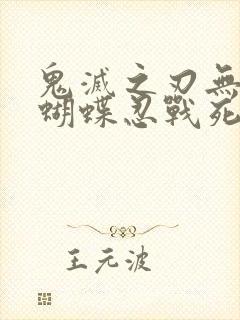 鬼滅之刃無
蝴蝶忍戰死
王元波